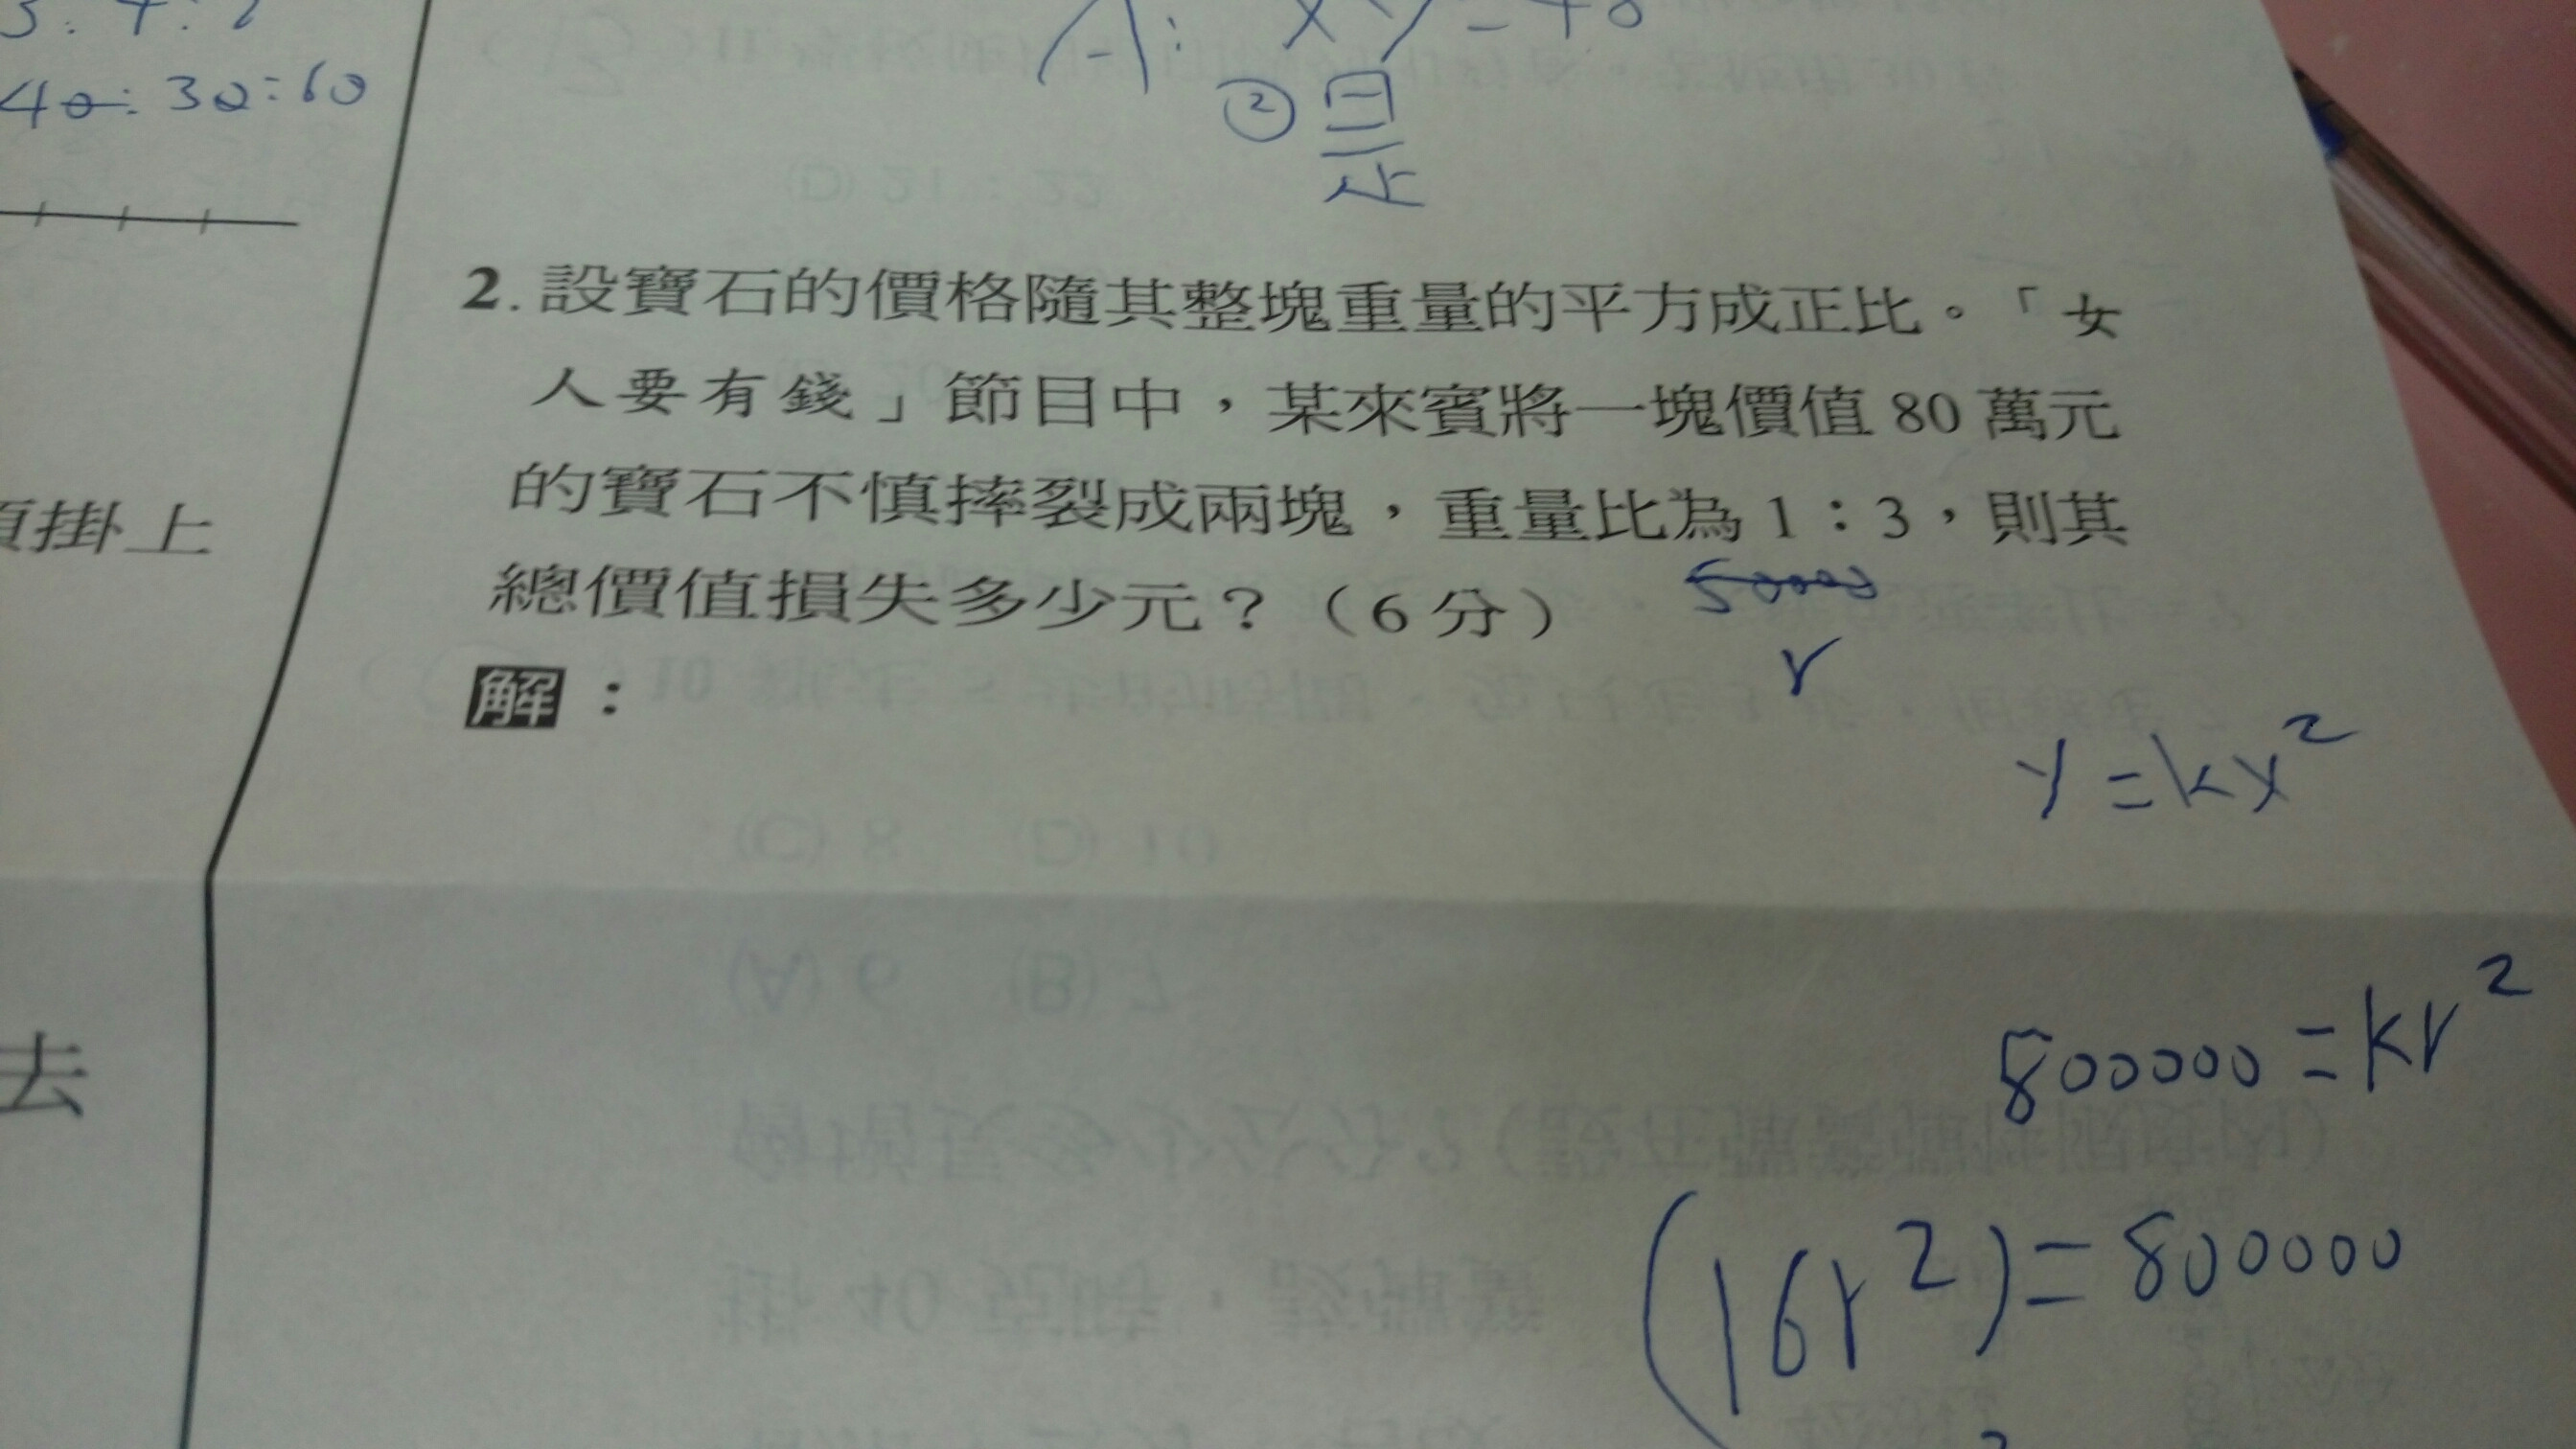 40:30:60
A: xy=48
② 是
2.設寶石的價格隨其整塊重量的平方成正比。「女
人要有錢」節目中，某來賓將一塊價值80萬元
的寶石不慎摔裂成兩塊，重量比為1：3，則其
總價值損失多少元？（6分）
50000
r
解：
y=kx²
800000=kr²
(16r²)=800000
掛上
去